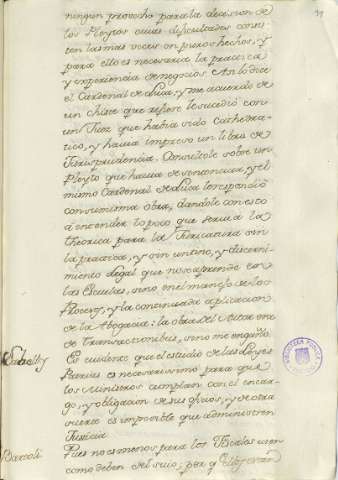 ningun provecho para la decision de
los Pleytos cuias dificultades consis-
ten las mas veces en puros hechos, y
para ello es necesaria la practica
y experiencia de negocios. Asi lo dice
el Cardenal de Luca, y me acuerdo de
un chiste que refiere le sucedió con
un Juez que havia sido Cathedra-
tico, y havia impreso un libro de
Jurisprudencia. Consultole sobre un
Pleyto que havia de sentenciar, y el
mismo Cardenal de Luca le respondió
con su misma obra, dandole con esto
á entender lo poco que servia la
theorica para la Judicatura sin
la practica, y sin un tino, y discerni-
miento legal que no se aprende en
las Escuelas, sino en el manejo de los
Procesos, y la continuada aplicacion
de la Abogacia: la obra del Autor era
de Transactionibus, sino me engaño.
Es evidente que el estudio de las Leyes
Patrias es necesarissimo para que
los Ministros cumplan con el encar-
go, y obligacion de sus oficios, y de otra
suerte es imposible que administren
Justicia
Pues no es menos para los Fiscales usen
como deben del suio; por q
Barcoli
BIBLIOTECA